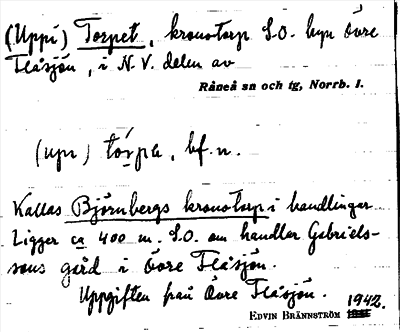 (Uppi) Torpet, kronotorp S.O. byn Övre
Flåsjön, i N.V. delen av
Råneå sn och tg, Norrb. l.
(upi) tórpɐ, bf. n.
Kallas Björnbergs kronotorp i handlingar
Ligger ca 400 m. S.O. om handlar Gabriels-
sons gård i Övre Flåsjön.
Uppgiften från Övre Flåsjön.
EDVIN BRÄNNSTRÖM 1942.